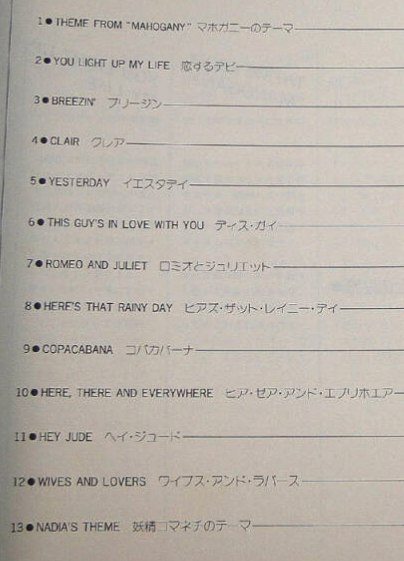 1●THEME FROM "MAHOGANY" マホガニーのテーマ
2●YOU LIGHT UP MY LIFE 恋するデビー
3●BREEZIN' ブリージン
4●CLAIR クレア
5●YESTERDAY イエスタデイ
6●THIS GUY'S IN LOVE WITH YOU ディス・ガイ
7●ROMEO AND JULIET ロミオとジュリエット
8●HERE'S THAT RAINY DAY ヒアズ・ザット・レイニー・デイ
9●COPACABANA コパカバーナ
10●HERE, THERE AND EVERYWHERE ヒア・ゼア・アンド・エブリホエアー
11●HEY JUDE ヘイ・ジュード
12●WIVES AND LOVERS ワイブス・アンド・ラバース
13●NADIA'S THEME 妖精コマネチのテーマ